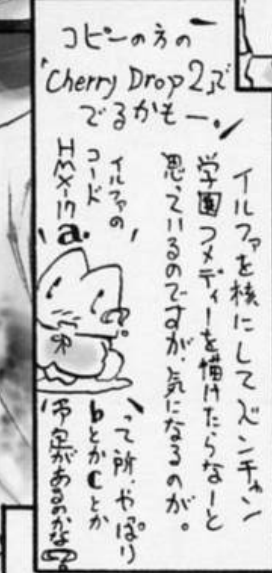 コピーの方の
「Cherry Drop2」で
でるかもー。
イルファを核にしてベンチャン
学園コメディーを描けたらなーと
思っているのですが、気になるのが。
イルファの
コード
HMX-17
a.
って所、やっぱり
bとかcとか
予定があるのかな?